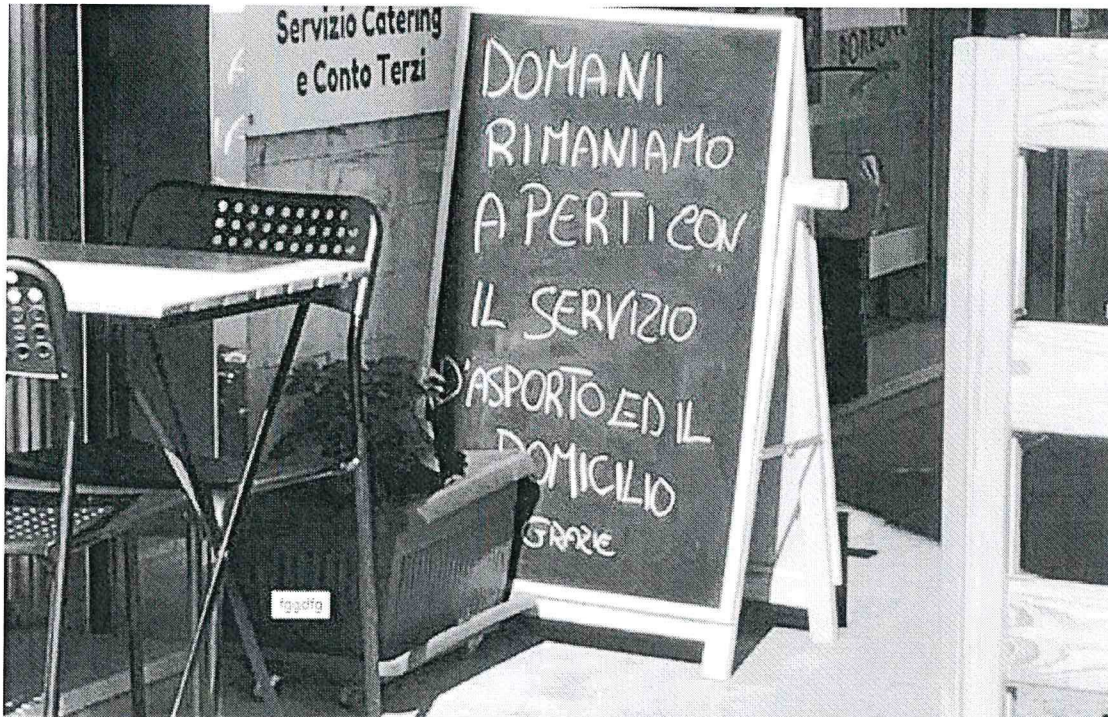 Servizio Catering
e Conto Terzi
DOMANI
RIMANIAMO
APERTI CON
IL SERVIZIO
D'ASPORTO ED IL
DOMICILIO
GRAZIE
fggdfg